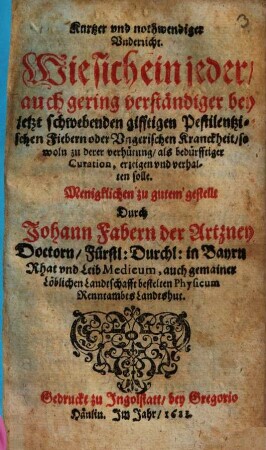 3
Kurtzer vnd nothwendiger
Vndericht.
Wie sich ein jeder/
auch gering verständiger bey
jetzt schwebenden gifftigen Pestilentzi-
schen Fiebern oder Vngerischen Kranckheit/ so
woln zu derer verhütung/ als bedürfftiger
Curation, erzeigen vnd verhal-
ten solle.
Menigklichen zu gutem gestellt
Durch
Johann Fabern der Artzney
Doctorn/ Fürstl: Durchl: in Bayrn
Rhat vnd Leib Medicum, auch gemainer
Löblichen Landtschafft bestelten Physicum
Renntambts Landtshut.
Gedruckt zu Ingolstatt/ bey Gregorio
Hänlin. Im Jahr/ 1622.